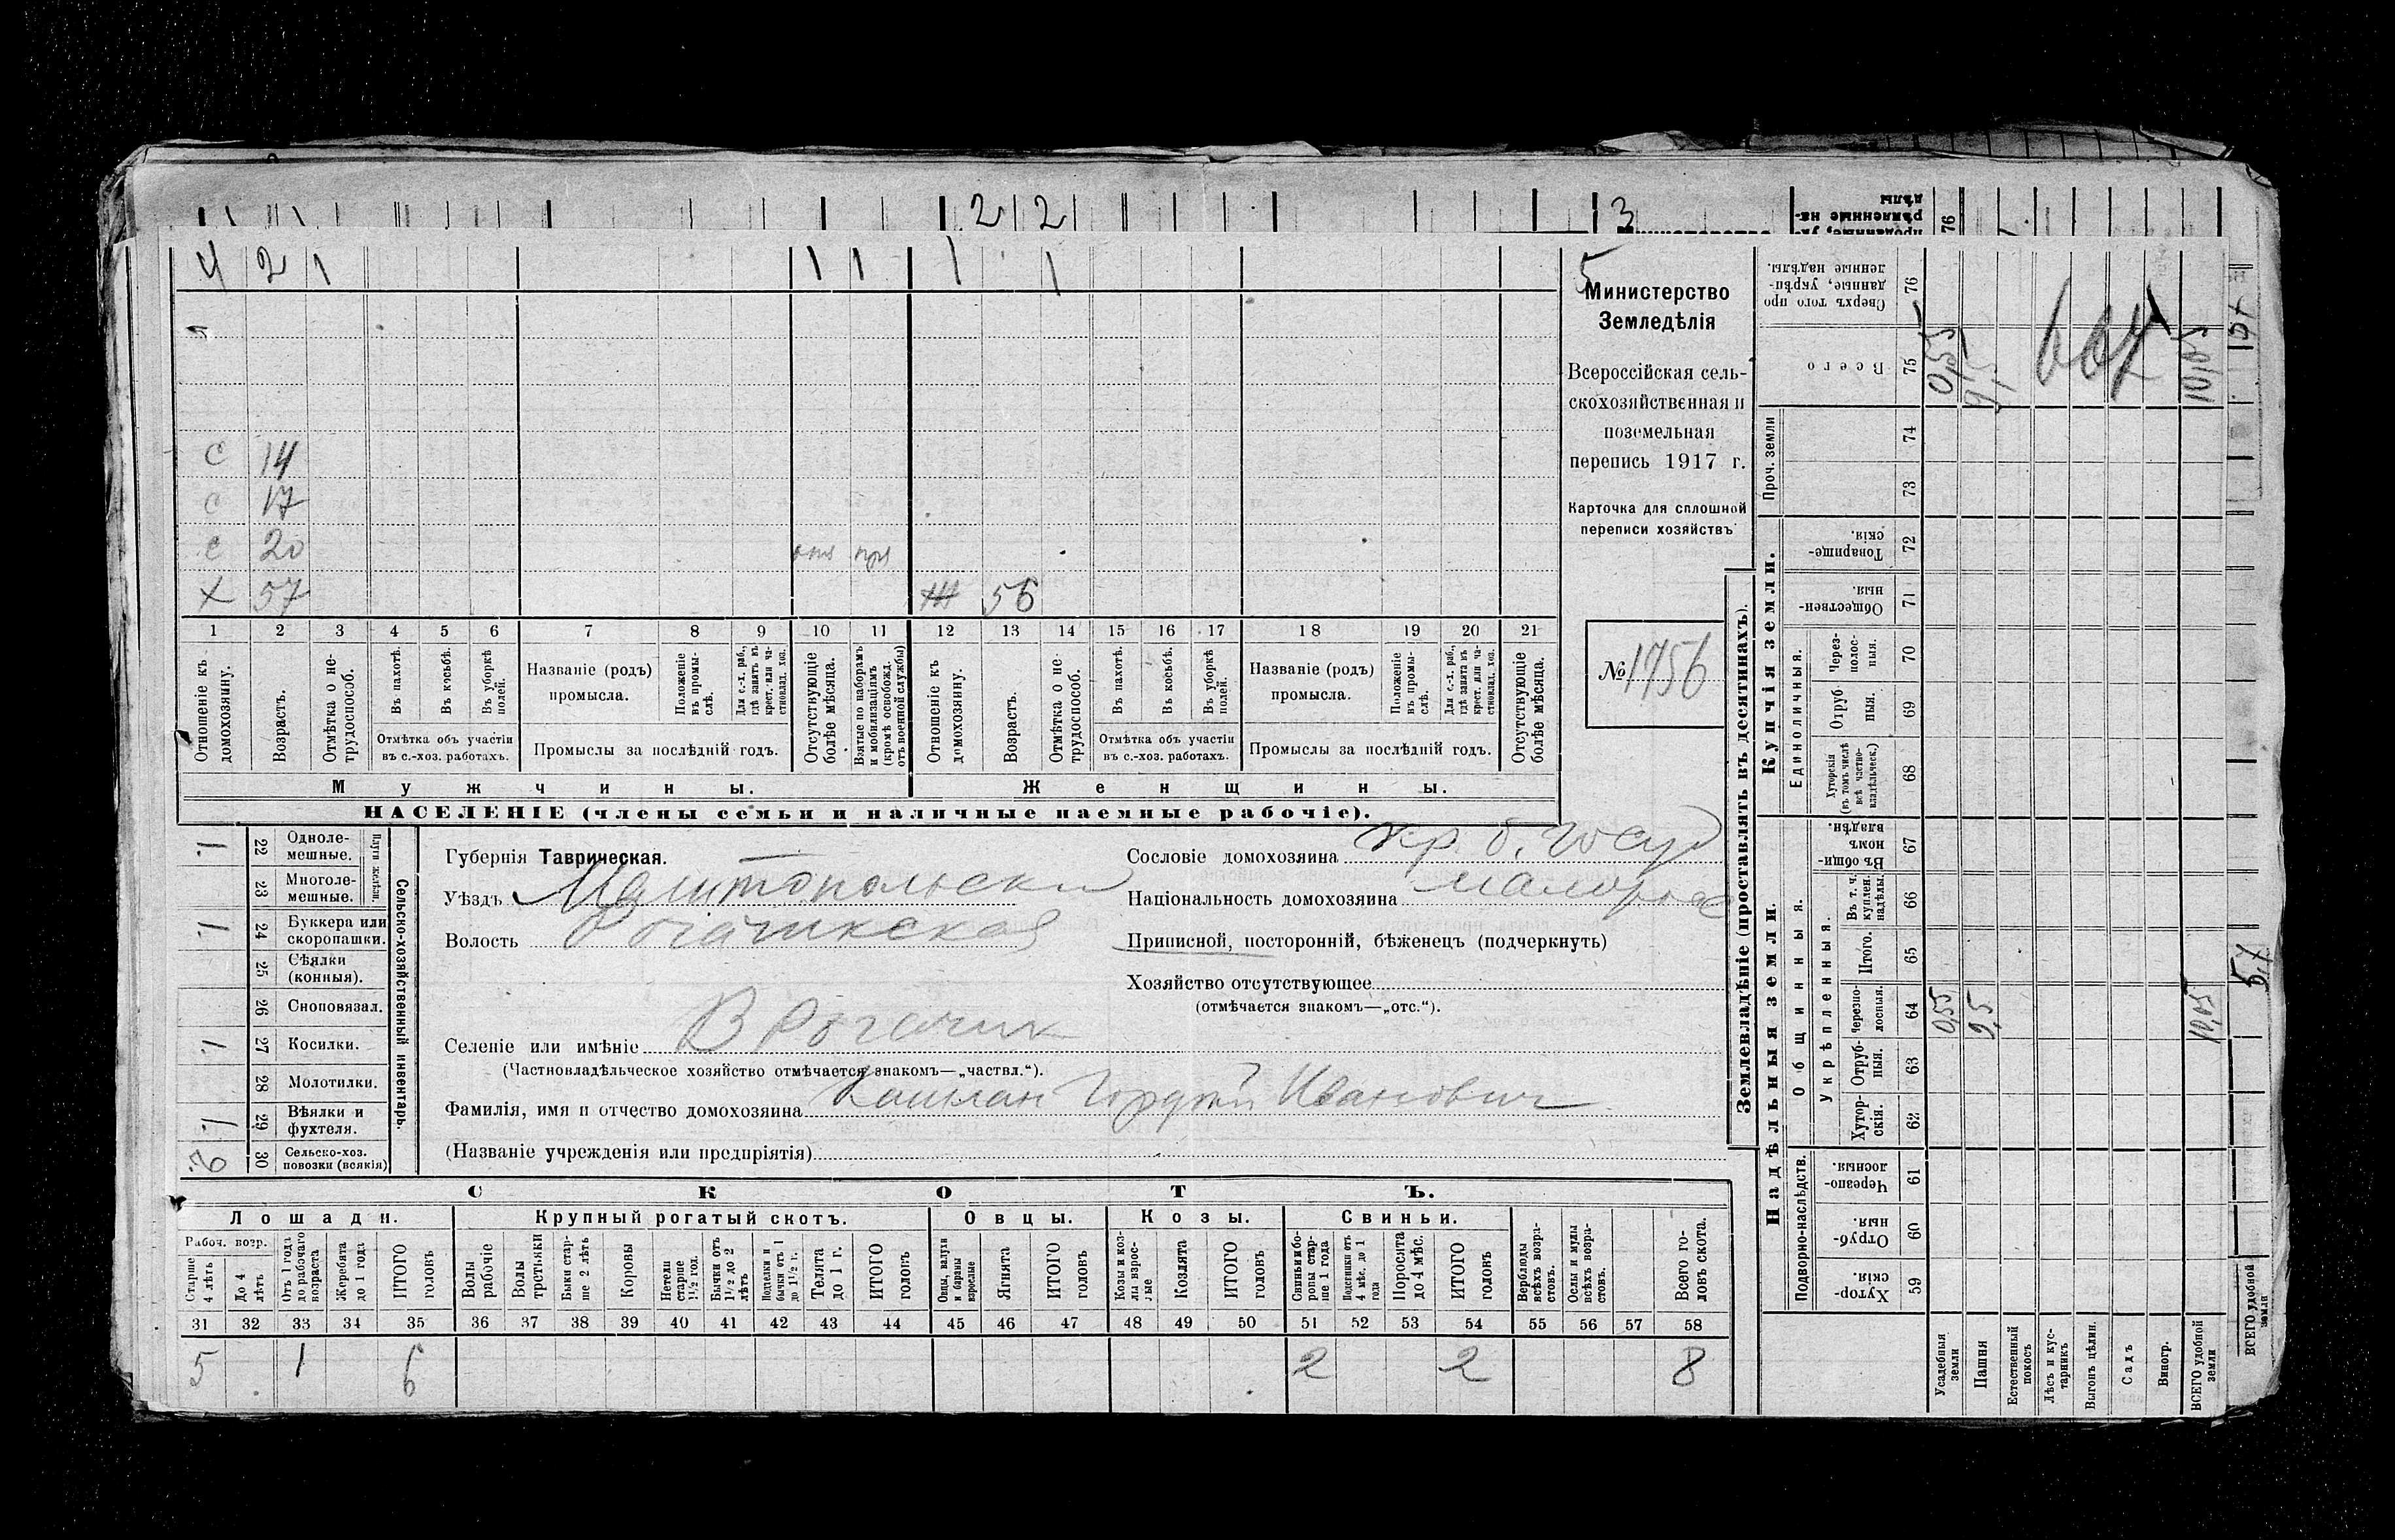 2 2 3
4 2 1 1 1 1 1 5
Министерство
Земледѣлія
Всероссійская сель-
скохозяйственная и
поземельная
перепись 1917 г.
Карточка для сплошной
переписи хозяйствъ
№ 1756
с 14
с 17
с 20
х 57 56
1 2 3 4 5 6 7 8 9 10 11 12 13 14 15 16 17 18 19 20 21
Отношеніе къ домохозяину.
Возрастъ.
Отмѣтка о не-трудоспособ.
Въ пахотѣ.
Въ косьбѣ.
Въ уборкѣ полей.
Отмѣтка объ участіи
въ с.-хоз. работахъ.
Названіе (родъ)
промысла.
Положеніе въ промы-слѣ.
Для с.-х. раб., гдѣ занятъ въ крест. или ча-стновлад. хоз.
Промыслы за послѣдній годъ.
Отсутствующіе болѣе мѣсяца.
Взятые по наборамъ и мобилизаціямъ (кромѣ освобожд. отъ военной службы)
Отношеніе къ домохозяину.
Возрастъ.
Отмѣтка о не-трудоспособ.
Въ пахотѣ.
Въ косьбѣ.
Въ уборкѣ полей.
Отмѣтка объ участіи
въ с.-хоз. работахъ.
Названіе (родъ)
промысла.
Положеніе въ промы-слѣ.
Для с.-х. раб., гдѣ занятъ въ крест. или ча-стновлад. хоз.
Промыслы за послѣдній годъ.
Отсутствующіе болѣе мѣсяца.
Мужчины. Женщины.
НАСЕЛЕНІЕ (члены семьи и наличные наемные рабочіе).
Сельско-хозяйственный инвентарь.
Плуги желѣзн.
1 22 Одноле-мешные.
23 Многоле-мешные.
1 24 Буккера или скоропашки.
25 Сѣялки (конныя).
26 Сноповязал.
1 27 Косилки.
28 Молотилки.
1 29 Вѣялки и фухтеля.
30 Сельско-хоз. повозки (всякія)
Губернія Таврическая.
Уѣздъ Мелитопольски
Волость Рогачикская
Селеніе или имѣніе В Рогачик
(Частновладѣльческое хозяйство отмѣчается знакомъ—„частвл.“).
Фамилія, имя и отчество домохозяина Кашлан Гордей Иванович
(Названіе учрежденія или предпріятія)
Сословіе домохозяина кр. б. госуд
Національность домохозяина малорос
Приписной, посторонній, бѣженецъ (подчеркнуть)
Хозяйство отсутствующее
(отмѣчается знакомъ—„отс.“).
СКОТЪ.
Лошади. Крупный рогатый скотъ. Овцы. Козы. Свиньи.
Рабоч. возр.
Старше 4 лѣтъ
До 4 лѣтъ
Отъ 1 года до рабочаго возраста
Жеребята до 1 года
ИТОГО головъ
Волы рабочіе
Волы третьяки
Быки стар-ше 2 лѣтъ
Коровы
Нетели старше 1½ год.
Бычки отъ 1½ до 2 лѣтъ
Подтелки и бычки отъ 1 до 1½ г.
Телята до 1 г.
ИТОГО головъ
Овцы, валухи и бараны взрослые
Ягнята
ИТОГО головъ
Козы и коз-лы взрос-лые
Козлята
ИТОГО головъ
Свиньи и бо-ровы стар-ше 1 года
Подсвинки отъ 4 мѣс. до 1 года
Поросята до 4 мѣс.
ИТОГО головъ
Верблюды всѣхъ возра-стовъ.
Ослы и мулы всѣхъ возра-стовъ.
Всего го-ловъ скота.
31 32 33 34 35 36 37 38 39 40 41 42 43 44 45 46 47 48 49 50 51 52 53 54 55 56 57 58
5 1 6 2 2 8
Землевладѣніе (проставлять въ десятинахъ).
Купчія земли.
Надѣльныя земли.
Проч. земли
Единоличныя.
Общинныя.
Укрѣпленныя.
Подворно-наслѣдств.
76 Сверхъ того про-данные, укрѣп-ленные надѣлы.
75 Всего 0,55 9,5 10,05
74
73
72 Товарище-скія.
71 Обществен-ныя.
70 Через-полос-ныя.
69 Отруб-ныя.
68 Хуторскія (въ томъ числѣ всѣ частно-владѣльческ.)
67 Въ общин-номъ владѣн.
66 Въ т. ч. куплен. надѣлы.
65 Итого.
64 Черезпо-лосныя. 0,55 9,5 10,05
63 Отруб-ныя.
62 Хутор-скія.
61 Черезпо-лосныя.
60 Отруб-ныя.
59 Хутор-скія.
Усадебныя земли
Пашня
Естественный покосъ
Лѣсъ и кус-тарникъ
Выгонъ цѣлин.
Садъ
Виногр.
ВСЕГО удобной земли
ВСЕГО удобной земли